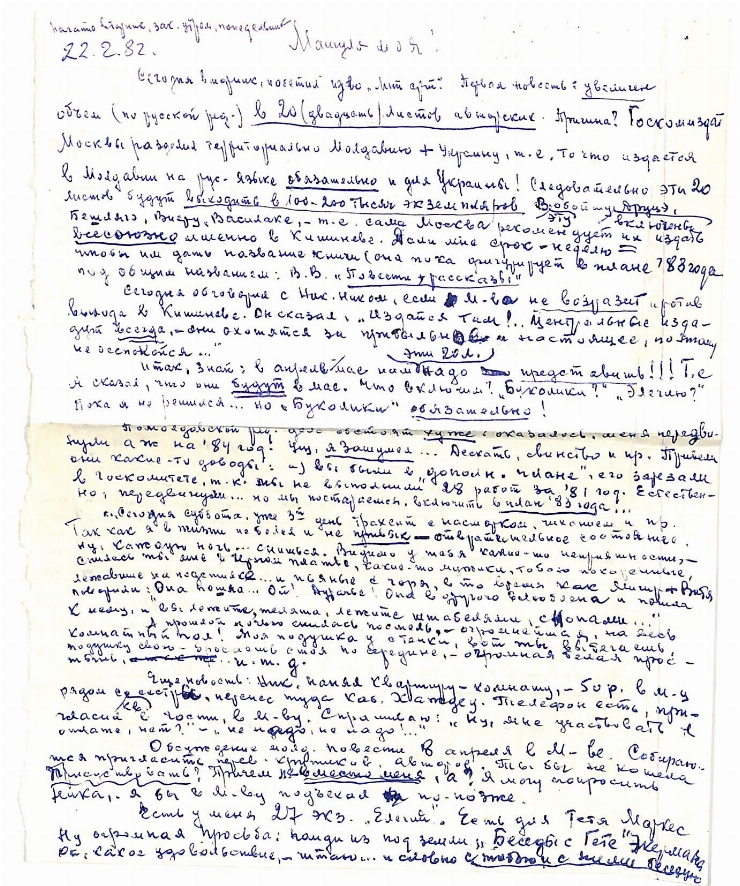 начато вторник, зак. утром, понедельник
22.2.82. Машуля моя!
Сегодня вторник, посетил изд-во „Лит. арт.“ Первая новость: увеличен
объем (по русской ред.) в 20 (двадцать) листов авторских. Причина? Госкомиздат
Москвы разделил территориально Молдавию + Украину, т.е. то что издается
в Молдавии на рус. языке обязательно и для Украины! Следовательно эти 20
листов будут выходить в 100-200 тысяч экземпляров. В эту обойму включены Друцэ,
Бешлягэ, Виеру, Василаке, – т.е. сама Москва рекомендует их издать
всесоюзно именно в Кишиневе. Дали мне срок – неделю =
чтобы им дать название книги (она пока фигурирует в плане '83 года
под общим названием: В.В. „Повести и рассказы“
Сегодня обговорил с Ник. Ником, если М-ва не возразит против
выхода в Кишиневе. Он сказал, „Издатся там!.. Центральные изда-
дут всегда, – они охотятся за прибыльн и настоящее, поэтому
не беспокойся...“
Итак, знай: в апреле-мае нам надо эти 20 л. представить!!! Т.е
я сказал, что они будут в мае. Что включим? „Буколики?“ „Элегию?“
Пока я не решился... но „Буколики“ обязательно!
По молдовской ред. дело обстоит хуже: оказалось, меня передви-
нули аж на '84 год! Ну, я зашумел... Дескать, свинство и пр. Привели
они какие-то доводы: а) вы были в „дополн. плане“, его зарезали
в Госкомитете, т.к. мы не выполнили 28 работ за '81 год. Естествен-
но, передвинули... но мы постараемся включить в план '83 года!..
Сегодня суббота, уже 3й день трахает с насморком, чиханием и пр.
Так как я в жизни не болел и не привык – отвратительное состояние.
Ну, каждую ночь... снишься. Видимо у тебя какие-то неприятности, –
снилась ты мне в черном платье, какие-то мужики, тобою покоренные,
лежавшие на и пьяные с горя, в то время как +
говорили: Она пошла... Ой! Она в другого влюблена и пошла
к нему, и вы лежите, телята, лежите штабелями, снопами...“
А прошлой ночью снилась постель, – огромнейшая, на всю
комнату пол! Моя подушка у стенки, вот ты
подушку свою стоя по середине, – огромная белая прос-
тынь, и т.д.
Еще новость: Ник. нанял квартиру-комнату, – 50 р. в м-ц
рядом с , перенес туда каб. Телефон есть, при-
гласил (кв) в гости, в М-ву. Спрашиваю: „Ну, мне участвовать в
оплате, нет?“ – „не надо, не надо!..“
Обсуждение молд. повести 8 апреля в М-ве. Собираю-
тся пригласить перев. критиков, авторов. Ты бы не хотела
присутствовать? Причем не вместо меня, а? Я могу попросить
Ника, я бы в М-ву подъехал по-позже.
Есть у меня 27 экз. „Элегий“. Есть для Тетя Маркес
Ну огромная просьба: найди из под земли „Беседы с Гете“ Эккермана
Ой, какое удовольствие, – читаю... и словно с тобою и с ними беседую